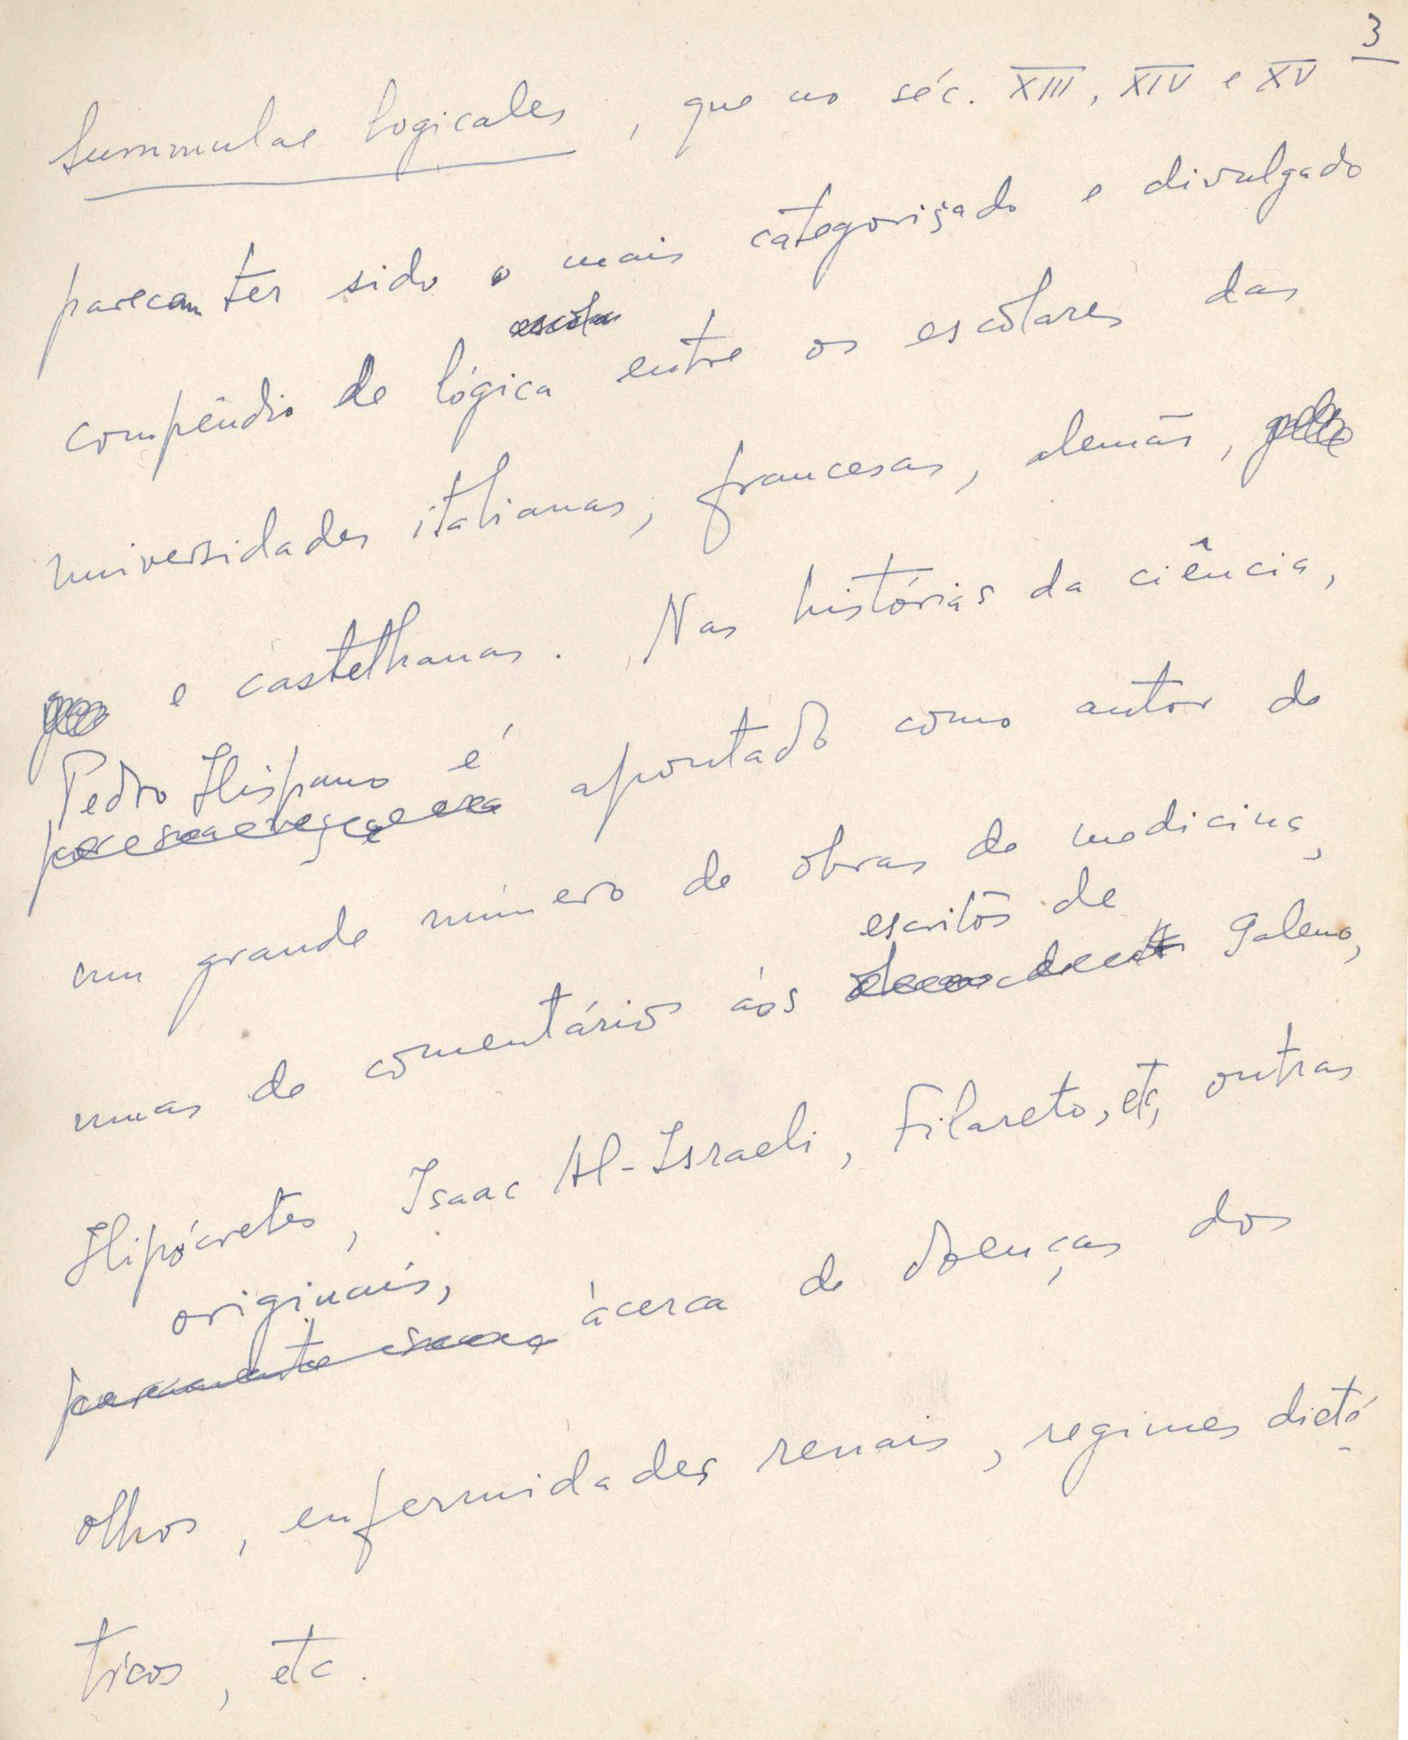 3
Summulae logicales, que no séc. XIII, XIV e XV
parecem ter sido o mais categorizado e divulgado
compêndio de lógica entre os escolares das
universidades italianas, francesas, alemãs,
e castelhanas. Nas histórias da ciência,
Pedro Hispano é apontado como autor de
um grande número de obras de medicina,
escritos de
umas de comentários aos Galeno,
Hipócretes, Isaac Al-Israeli, Filareto, etc, outras
originais,
àcerca de doenças dos
olhos, enfermidades renais, regimes dieté
ticos, etc.